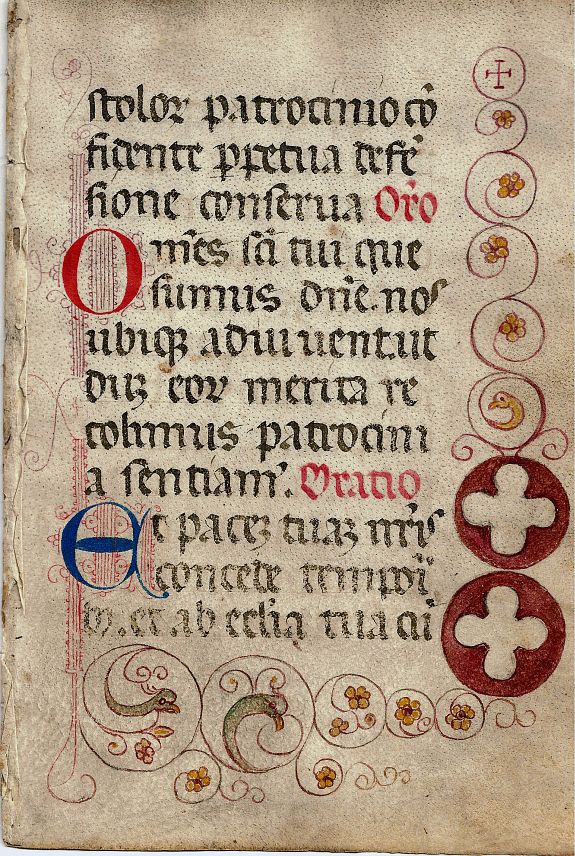 stoloꝝ patrocinio cō
fidente ꝑpetua defē
sione conserua Orō
Omēs scī tui que
sumus dn̄e. nos
ubiqꝫ adiuuent. ut
duꝫ eoꝝ merita re
colimus patrocini
a sentiam᷒. Oratio
Et paceꝫ tuaꝫ nr̄is
concede tempoī
bꝫ. et ab ecl̄ia tua cū